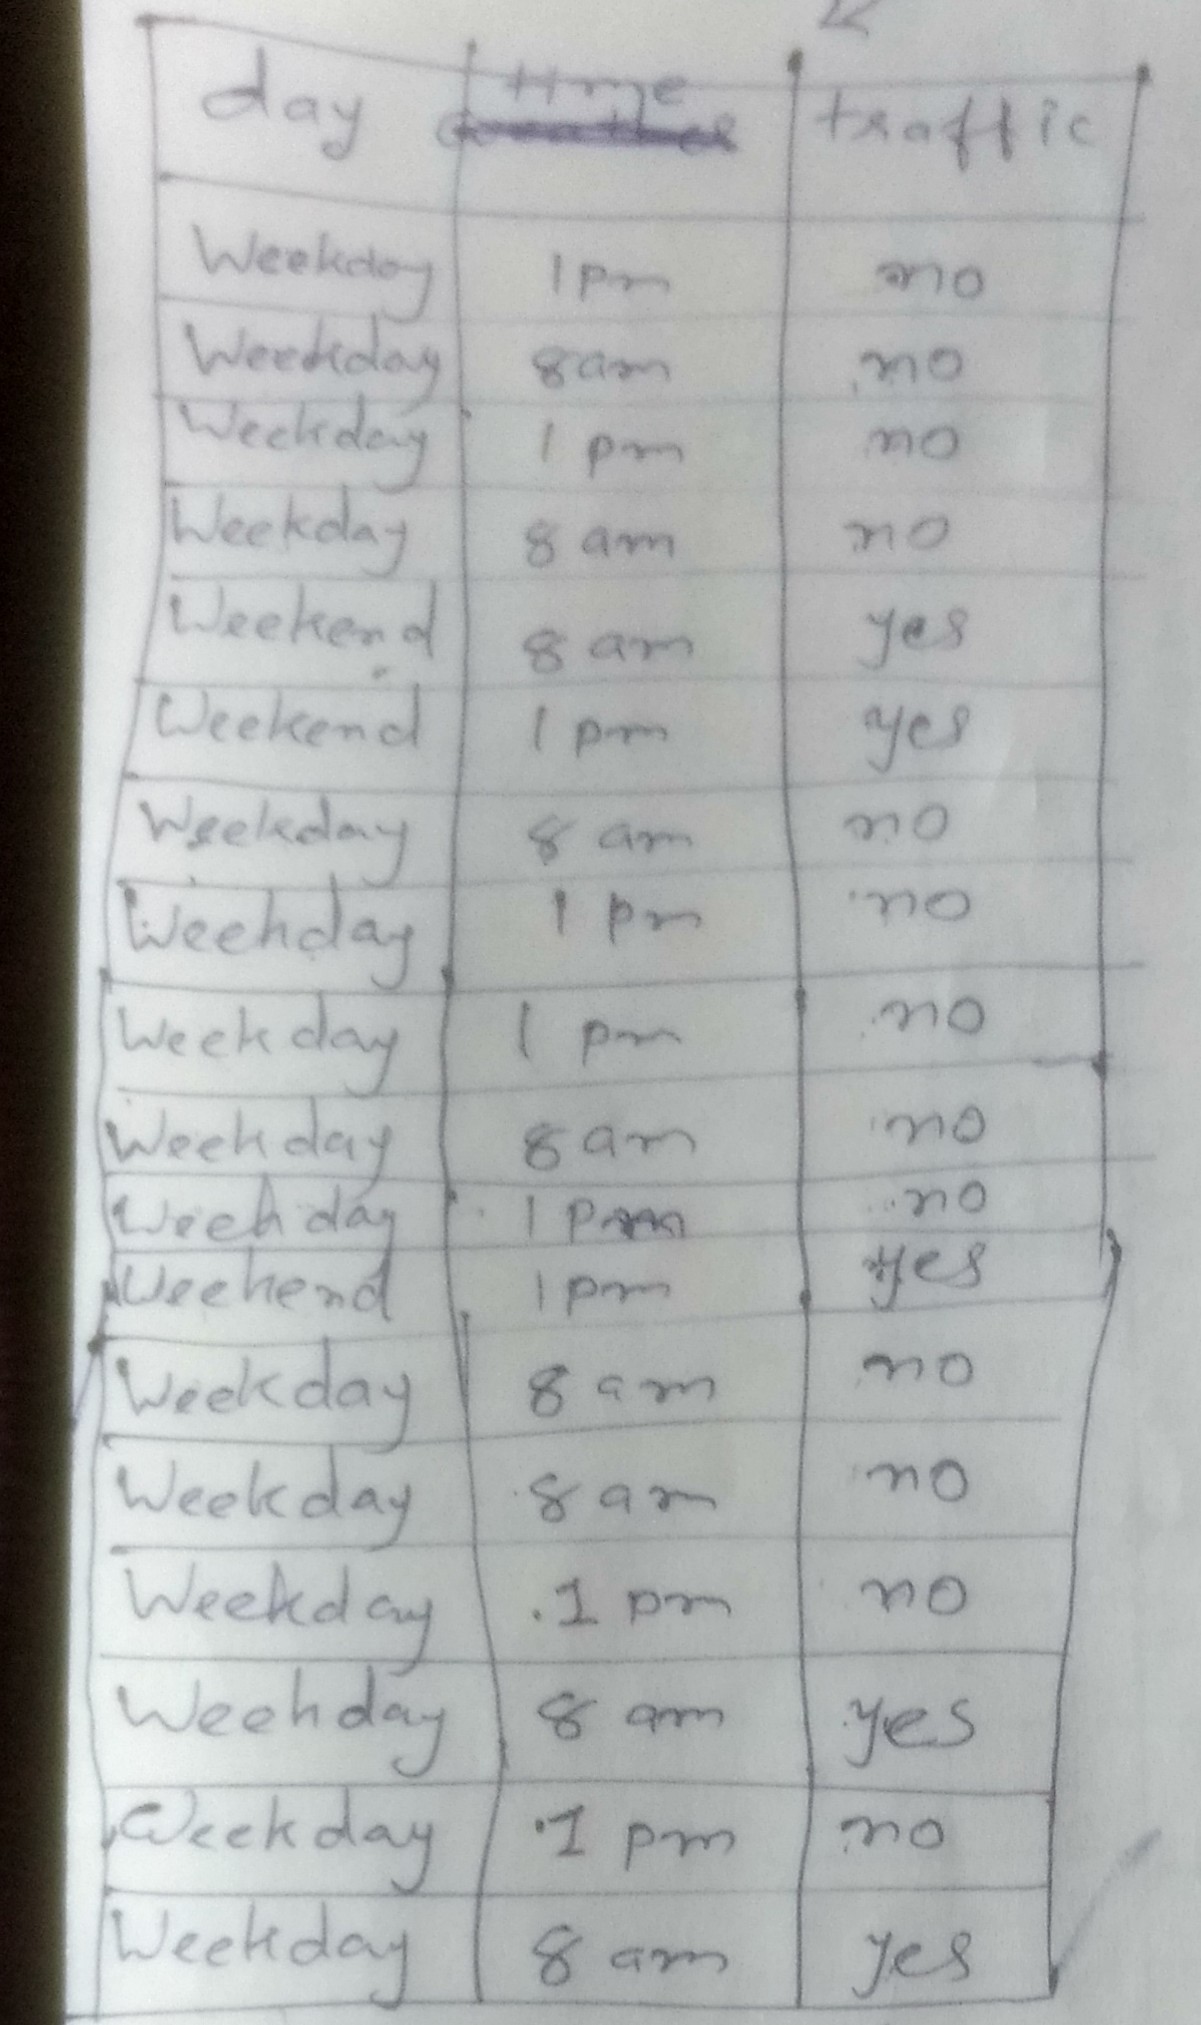 day time traffic
Weekday 1pm no
Weekday 8am no
Weekday 1 pm no
Weekday 8 am no
Weekend 8 am yes
Weekend 1 pm yes
Weekday 8 am no
Weekday 1 pm no
Weekday 1 pm no
Weekday 8am no
Weekday 1 pm no
Weekend 1pm yes
Weekday 8 am no
Weekday 8 am no
Weekday 1 pm no
Weekday 8 am yes
Weekday 1 pm no
Weekday 8 am yes